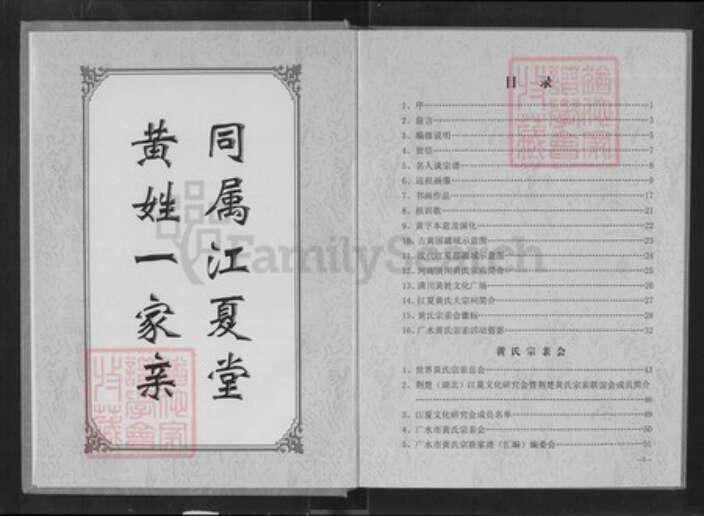 同属江夏堂
黄姓一家亲
目 录
1、序 1
2、前言 3
3、编修说明 5
4、贺信 7
5、名人谈宗谱 8
6、远祖画像 9
7、书画作品 17
8、祖训歌 21
9、黄字本意及演化 22
10、古黄国疆域示意图 23
11、汉代江夏郡疆域示意图 24
12、河南潢川黄氏宗庙简介 25
13、潢川黄姓文化广场 26
14、江夏黄氏大宗祠简介 27
15、黄氏宗亲会徽标 28
16、广水黄氏宗亲活动剪影 32
黄氏宗亲会
1、世界黄氏宗亲总会 43
2、荆楚（湖北）江夏文化研究会暨荆楚黄氏宗亲联谊会成员简介
46
3、江夏文化研究会成员名单 49
4、广水市黄氏宗亲会 50
5、广水市黄氏宗族家谱（汇编）编委会 51
FamilySearch